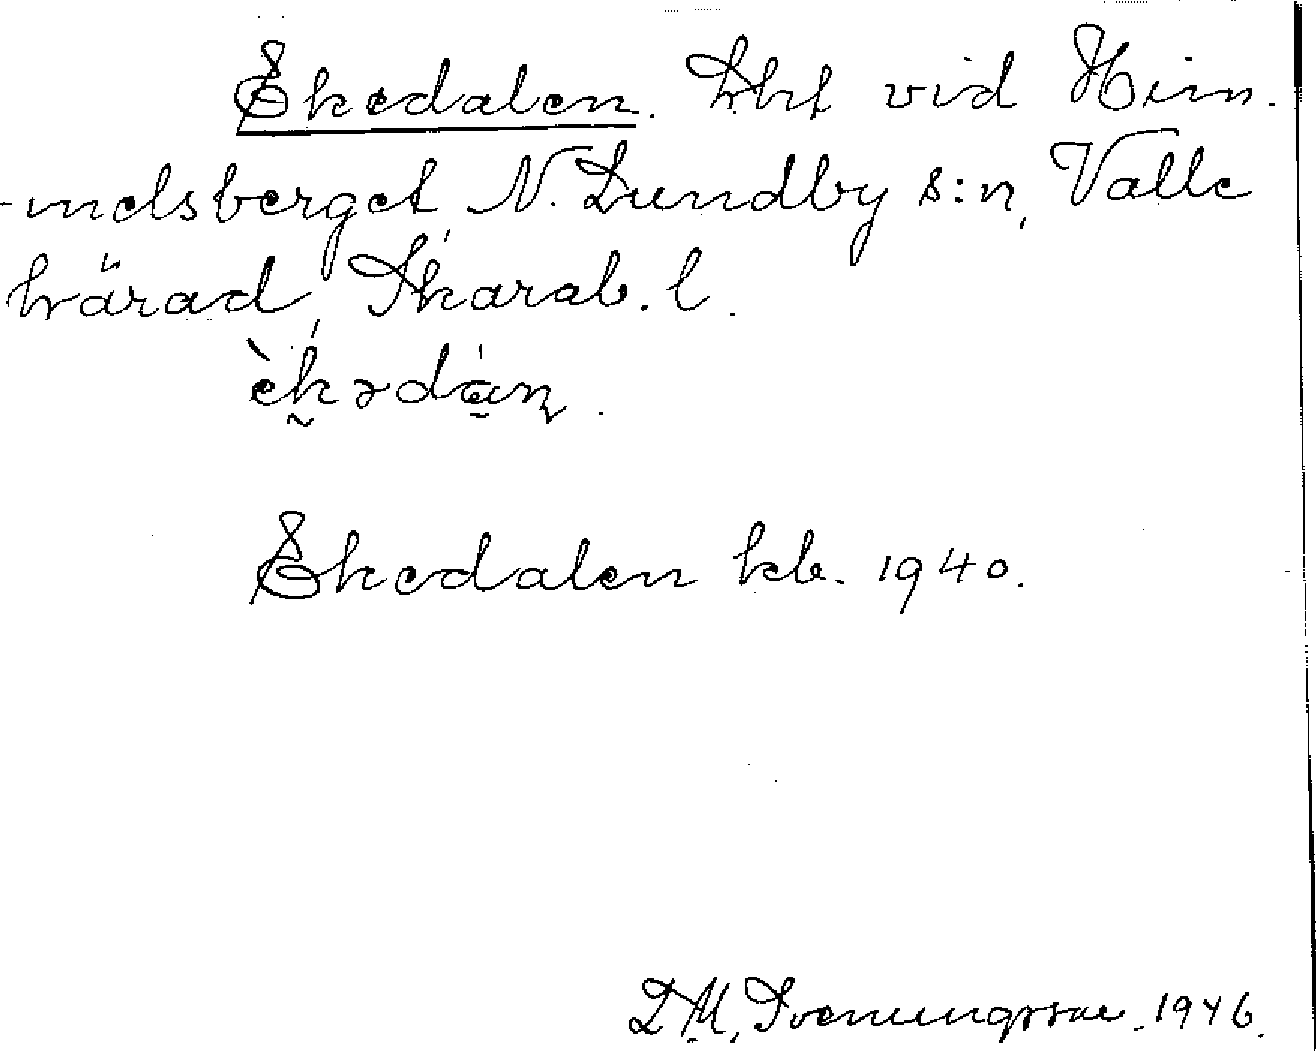 Ekedalen. Lht vid Him-
melsberget, N. Lundby s:n, Valle
härad, Skarab. l.
èk̰ədá̱ɳ.
Ekedalen kb. 1940.
D.M. Svenungsson. 1946.